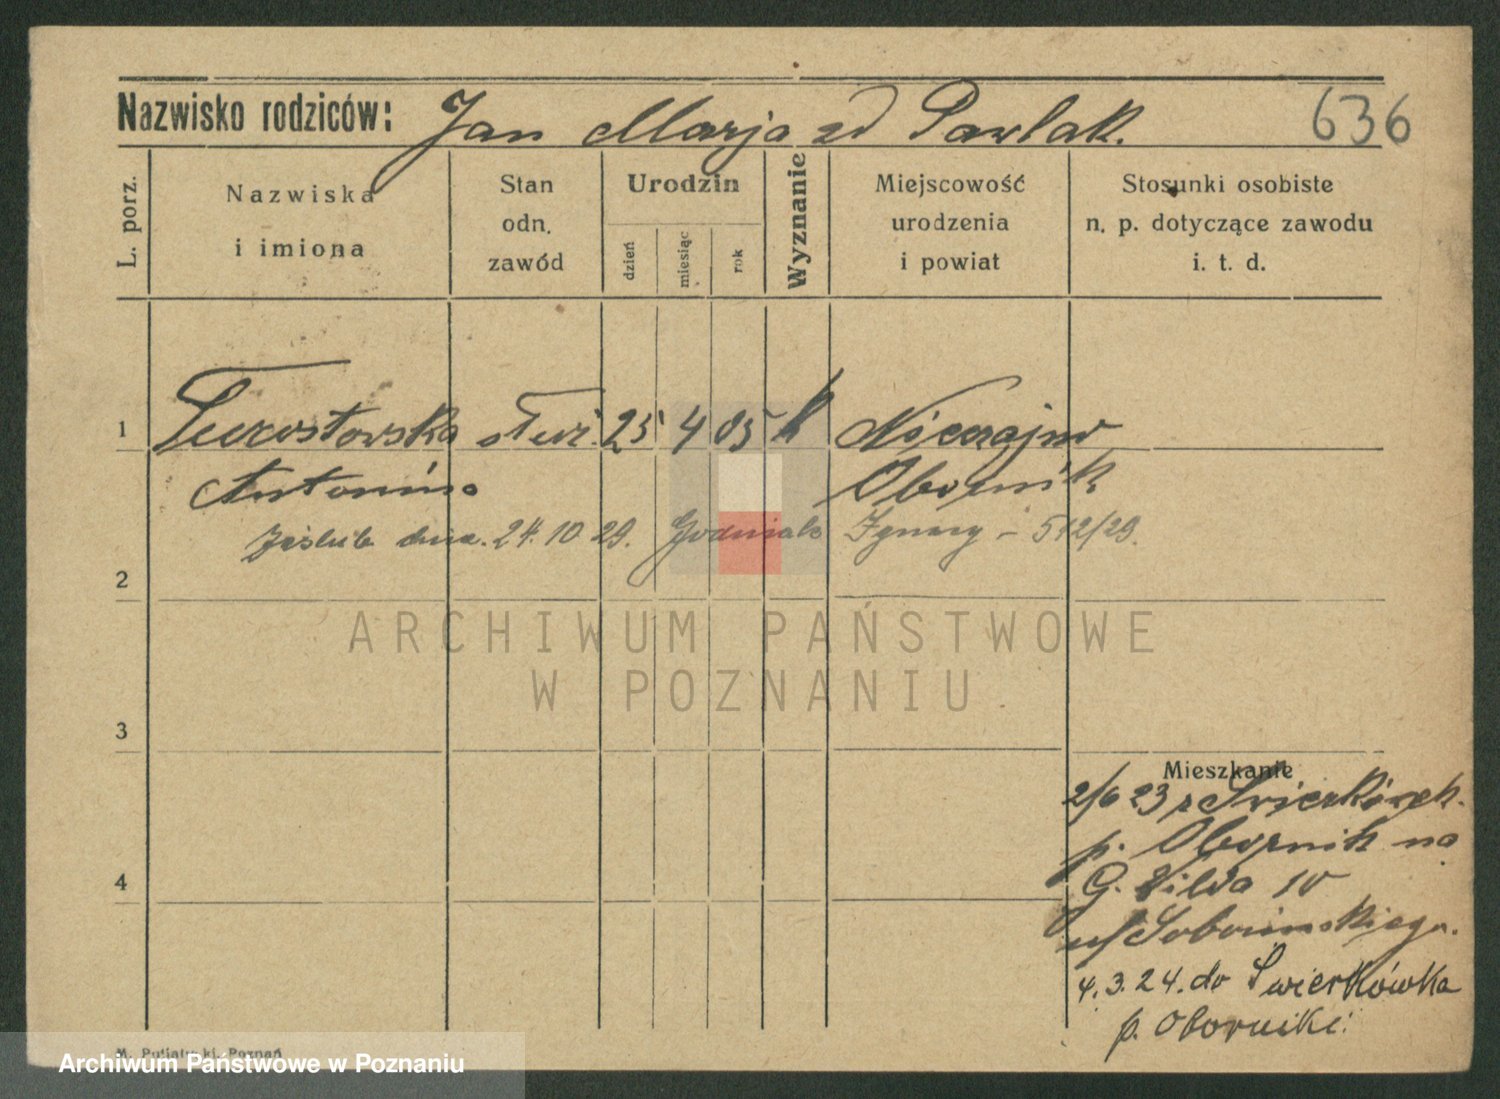 Nazwisko rodziców: Jan Marja zd Pawlak. 636
L. porz.
Nazwiska
i imiona
Stan
odn.
zawód
Urodzin
dzień
miesiąc
rok
Wyznanie
Miejscowość
urodzenia
i powiat
Stosunki osobiste
n. p. dotyczące zawodu
i. t. d.
1 służ. 25 4 05 k
Antonina Obornik
dnia 24. 10 29. Ignacy – 512/29.
2
ARCHIWUM PAŃSTWOWE
W POZNANIU
3
Mieszkanie
2/6 23 z
p. Obornik na
G. Wilda 10
4
u/
4. 3. 24. do Swierkówka
p. Oborniki.
M. Putiatycki, Poznań
Archiwum Państwowe w Poznaniu